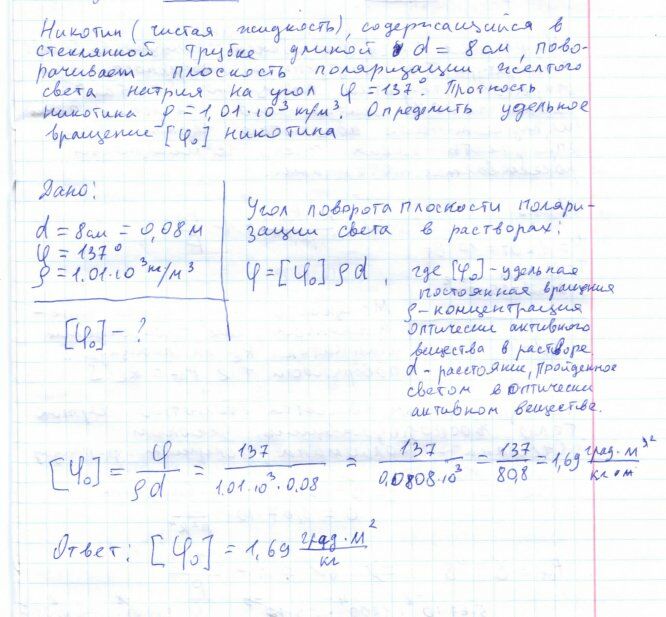 Никотин (чистая жидкость), содержащийся в
стеклянной трубке длиной d = 8 см, пово-
рачивает плоскость поляризации желтого
света натрия на угол φ = 137°. Плотность
никотина ρ = 1,01·10³ кг/м³. Определить удельное
вращение [φ₀] никотина
Дано:
d = 8см = 0,08 м
φ = 137°
ρ = 1.01·10³ кг/м³
[φ₀] - ?
Угол поворота плоскости поляри-
зации света в растворах:
φ = [φ₀] ρ d , где [φ₀] - удельная
постоянная вращения
ρ - концентрация
оптически активного
вещества в растворе.
d - расстояние, пройденное
светом в оптически
активном веществе.
[φ₀] = φ/ρd = 137/1.01·10³·0,08 = 137/0,0808·10³ = 137/80,8 = 1,69 град·м²/кг
Ответ: [φ₀] = 1,69 град·м²/кг